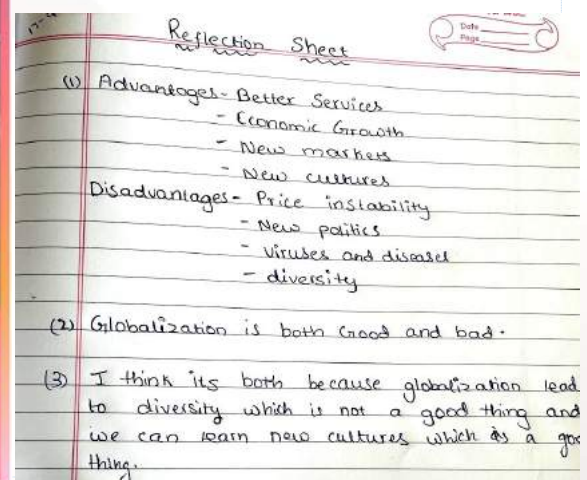 Reflection Sheet
Date
Page
(1) Advantages - Better Services
- Economic Growth
- New markets
- New cultures
Disadvantages - Price instability
- New politics
- Viruses and diseases
- diversity
(2) Globalization is both Good and bad.
(3) I think its both because globalization lead
to diversity which is not a good thing and
we can learn new cultures which is a goo
thing.